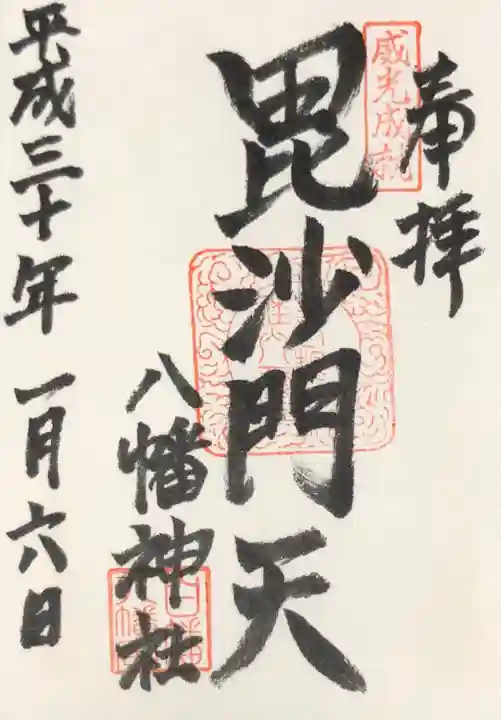 奉拝
威光成就
毘沙門天
八幡神社
平成三十年 一月六日